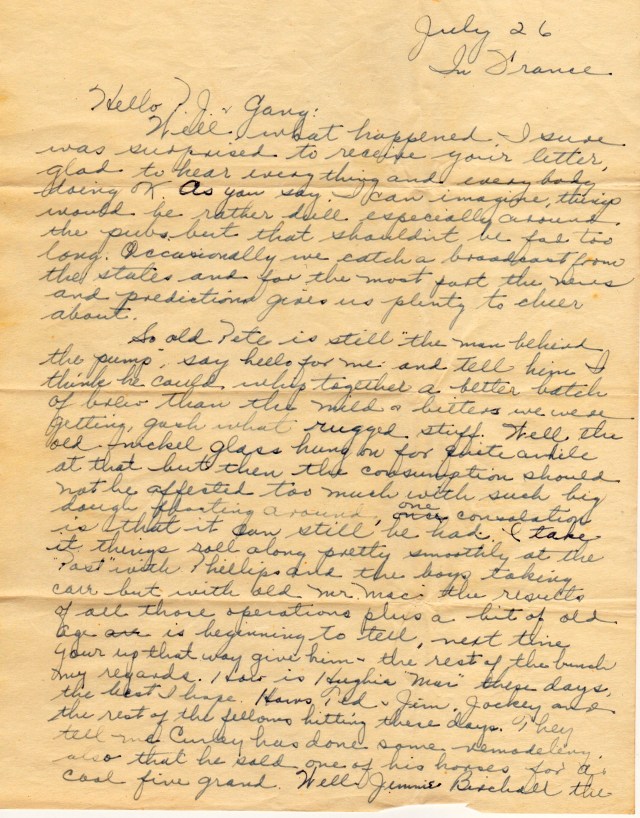 July 26
In France.
Hello P.J. & Gang:
Well what happened, I sure
was surprised to receive your letter,
glad to hear everything and every body
doing OK As you say. I can imagine, things
would be rather dull especially around
the pubs. but that shouldn't be for too
long. Occasionally we catch a broadcast from
the states and for the most part the news
and predictions gives us plenty to cheer
about.
So old Pete is still "the man behind
the pump", say hello for me and tell him I
think he could whip together a better batch
of brew than the mild & bitters we were
getting, gosh what rugged stiff. Well the
old nickel glass hung on for quite awhile
at that but then the consumption should
not be affected too much with such big
dough floating around, one consolation
is that it can still be had. I take
it things roll along pretty smoothly at the
"Post" with Phillips and the boys taking
carr but with old Mr. Mac the results
of all those operations plus a bit of old
age is beginning to tell, next time
your up that way give him & the rest of the bunch
my regards. How is Hughie "Mar" these days,
the best I hope. Hows Ted & Jim, Jockey and
the rest of the fellows hitting these days. They
tell me Curley has done some remodeleing.
also that he sold one of his horses for a
cool five grand. Well Jimmie Birchall the